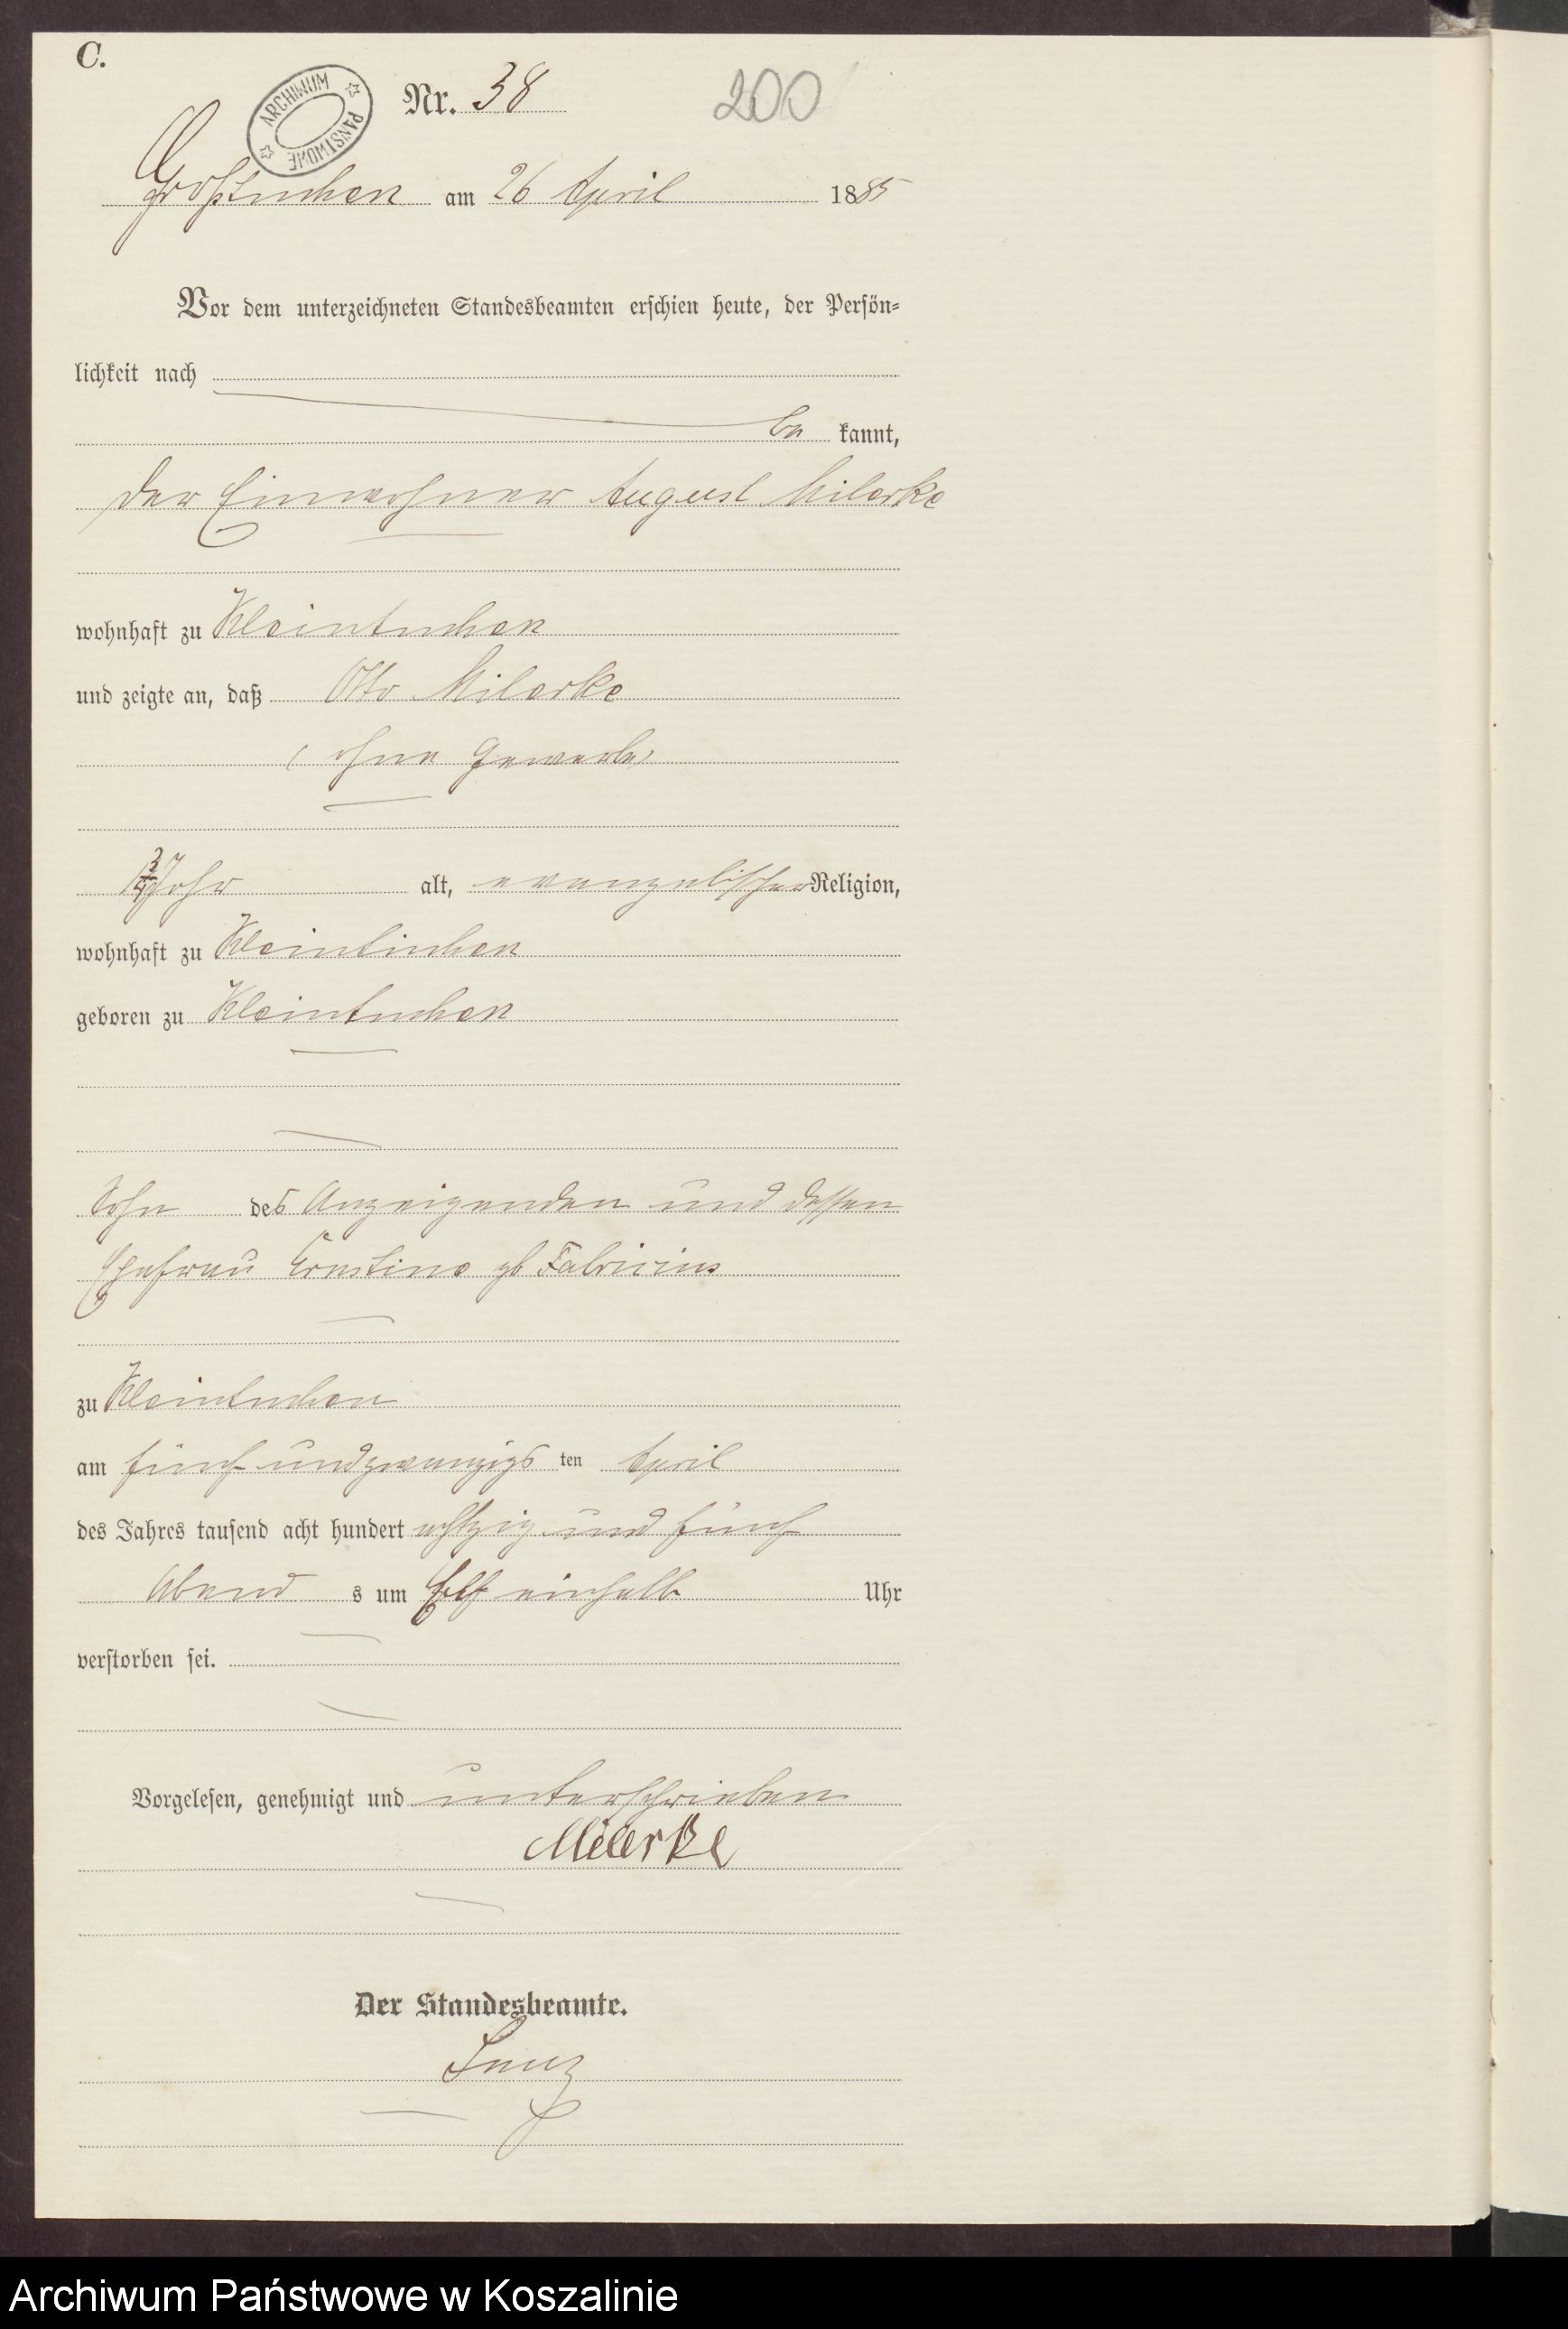 C.
ARCHIWUM PAŃSTWOWE
Nr. 38
200
Großtuchen am 26 April 1885
Vor dem unterzeichneten Standesbeamten erschien heute, der Persön=
lichkeit nach
be kannt,
der Einwohner August Milarke
wohnhaft zu Kleintuchen
und zeigte an, daß Otto Milarke
(ohne Gewerbe)
3/4 Jahr alt, evangelischer Religion,
wohnhaft zu Kleintuchen
geboren zu Kleintuchen
Sohn des Anzeigenden und dessen
Ehefrau Ernstine gb Fabricius
zu Kleintuchen
am fünf undzwanzigs ten April
des Jahres tausend acht hundert achtzig und fünf
Abend s um Elf einhalb Uhr
verstorben sei.
Vorgelesen, genehmigt und unterschrieben
Der Standesbeamte.
Archiwum Państwowe w Koszalinie